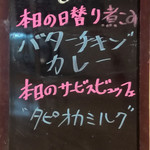 本日の日替り煮こみ
バターチキン
カレー
本日のサービスビュッフェ
タピオカミルク